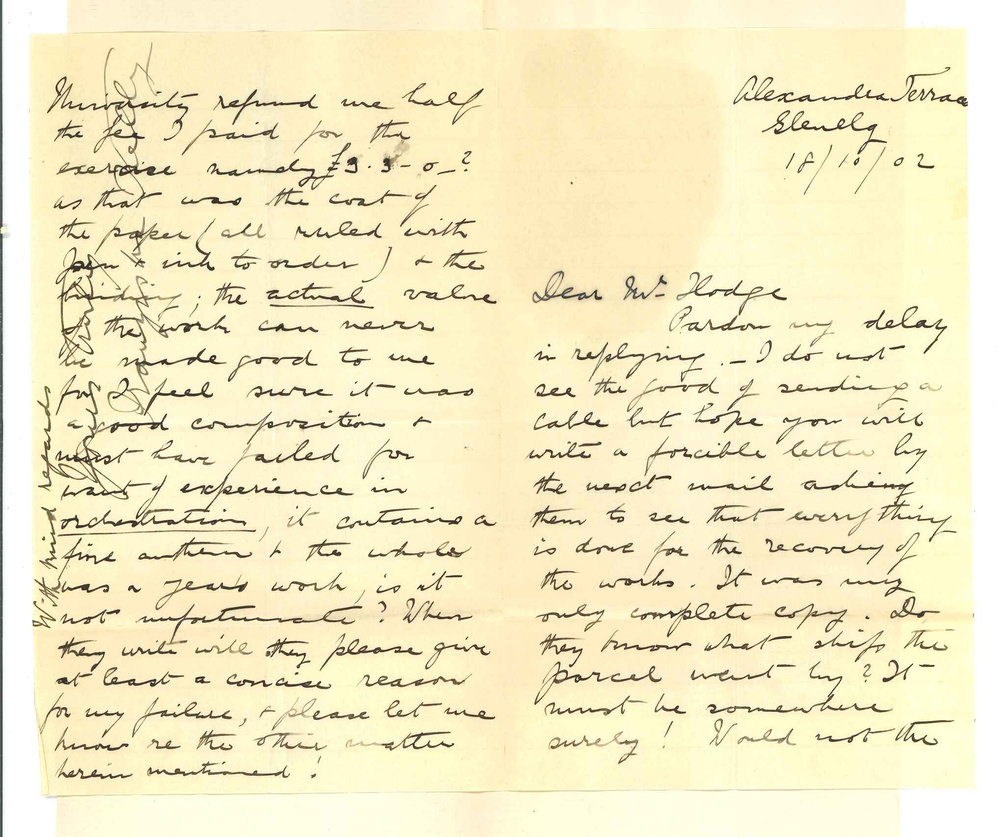 Alexandra Terrace
Glenelg
18/10/02
Dear Mr. Hodge
Pardon my delay
in replying. — I do not
see the good of sending a
cable but hope you will
write a forcible letter by
the next mail asking
them to see that everything
is done for the recovery of
the works. It was my
only complete copy. Do
they know what ship the
parcel went by? It
must be somewhere
surely! Would not the
University refund me half
the fee I paid for the
exercise namely £3-3-0-?
as that was the cost of
the paper (all ruled with
pen & ink to order) & the
binding; the actual value
of the work can never
be made good to me
for I feel sure it was
a good composition &
must have failed for
want of experience in
orchestration, it contains a
fine anthem & the whole
was a years work, is it
not unfortunate? When
they write will they please give
at least a concise reason
for my failure, & please let me
know re the other matter
herein mentioned!
With kind regards
Yours